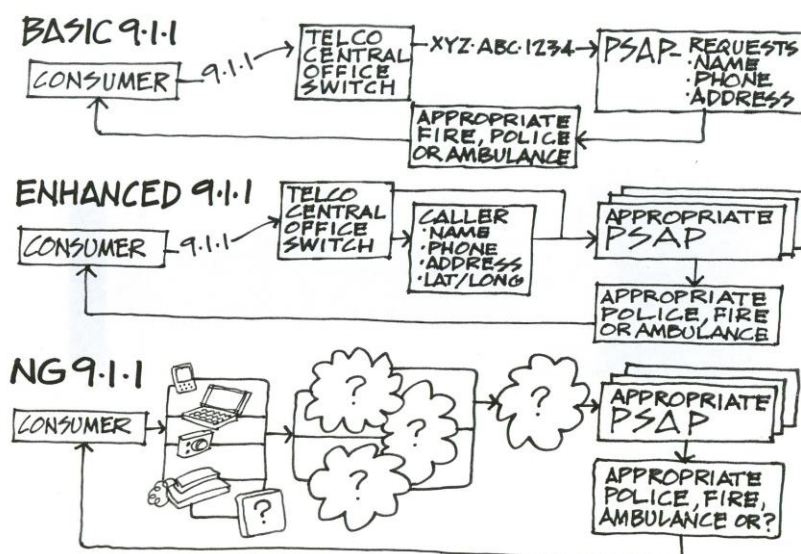 BASIC 9·1·1
CONSUMER
9·1·1
TELCO
CENTRAL
OFFICE
SWITCH
XYZ·ABC·1234
PSAP- REQUESTS
·NAME
·PHONE
·ADDRESS
APPROPRIATE
FIRE, POLICE
OR AMBULANCE
ENHANCED 9·1·1
CONSUMER
9·1·1
TELCO
CENTRAL
OFFICE
SWITCH
CALLER
·NAME
·PHONE
·ADDRESS
·LAT/LONG
APPROPRIATE
PSAP
APPROPRIATE
POLICE, FIRE
OR AMBULANCE
NG 9·1·1
CONSUMER
?
?
?
?
?
APPROPRIATE
PSAP
APPROPRIATE
POLICE, FIRE,
AMBULANCE OR?